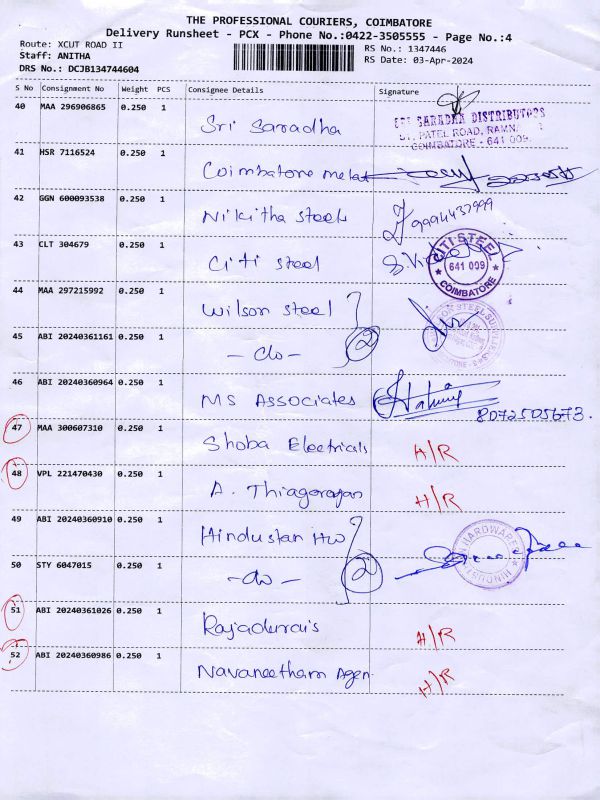 THE PROFESSIONAL COURIERS, COIMBATORE
Delivery Runsheet - PCX - Phone No.:0422-3505555 - Page No.:4
Route: XCUT ROAD II
RS No.: 1347446
Staff: ANITHA
RS Date: 03-Apr-2024
DRS No.: DCJB134744604
S No Consignment No Weight PCS Consignee Details Signature
40 MAA 296906865 0.250 1
Sri Saradha
SRI SARADHA DISTRIBUTORS
PATEL ROAD, RAMN.
COIMBATORE - 641 009.
41 HSR 7116524 0.250 1
Coimbatore metal
42 GGN 600093538 0.250 1
Nikitha steels
9994437999
43 CLT 304679 0.250 1
Citi steel
CITI STEEL
641 009
COIMBATORE
44 MAA 297215992 0.250 1
Wilson steel
2
45 ABI 20240361161 0.250 1
- do -
46 ABI 20240360964 0.250 1
MS Associates
8072505673.
47 MAA 300607310 0.250 1
Shoba Electricals H/R
48 VPL 221470430 0.250 1
A. Thiagarajan H/R
49 ABI 20240360910 0.250 1
Hindustan HW
HINDUSTAN HARDWARES
50 STY 6047015 0.250 1
- do - 2
51 ABI 20240361026 0.250 1
Rajadurais H/R
52 ABI 20240360986 0.250 1
Navaneetham Agen H/R